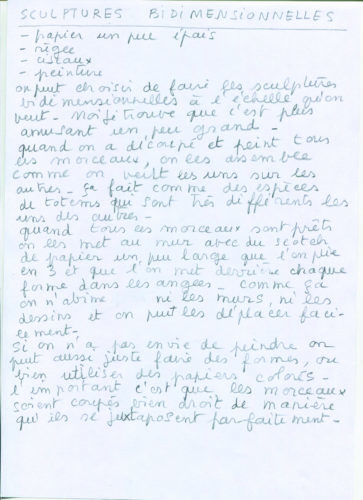 SCULPTURES BIDIMENSIONNELLES
- papier un peu épais
- règle
- ciseaux
- peinture
on peut choisir de faire les sculptures
bidimensionnelles à l'échelle qu'on
veut - moi je trouve que c'est plus
amusant un peu grand -
quand on a découpé et peint tous
les morceaux, on les assemble
comme on veut les uns sur les
autres - ça fait comme des espèces
de totems qui sont très différents les
uns des autres -
quand tous les morceaux sont prêts
on les met au mur avec du scotch
de papier un peu large que l'on plie
en 3 et que l'on met derrière chaque
forme dans les angles - comme ça
on n'abîme ni les murs, ni les
dessins et on peut les déplacer faci-
lement -
si on n'a pas envie de peindre on
peut aussi juste faire des formes, ou
bien utiliser des papiers colorés -
l'important c'est que les morceaux
soient coupés bien droit de manière
qu'ils se juxtaposent parfaitement -